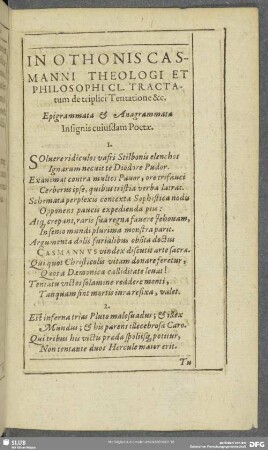 IN OTHONIS CAS-
MANNI THEOLOGI ET
PHILOSOPHI CL. TRACTA-
tum de triplici Tentatione &c.
Epigrammata & Anagrammata
Insignis cuiusdam Poetæ.
1.
SOluere ridiculos vafri Stilbonis elenchos
Ignarum necuit te Diodore Pudor.
Exanimat contra multos Pauor, ore trifauci
Cerberus ipse, quibus tristia verba latrat.
Schemata perplexis contexta Sophistica nodis
Opponens paucis expedienda pie:
Atq, crepans, raris sua regna fauere Jehouam,
Infensio mundi plurima monstra parit.
Argumenta dolis furialibus obsita doctus
CASMANNVS vindex discutit arte sacra.
Qui quot Christicolis vitam donare feretur,
Quos à Dæmonica calliditate leuat!
Tentatis victos solamine reddere menti,
Tanquam sint mortis inra refixa, valet.
2.
Est inferna trias Pluto malesuadus; & illex
Mundus; & his parens illecebrosa Caro.
Qui tribus his victis præda spoliisq, potitur,
Non tentante duos Hercule maior erit.
Tu
SLUB